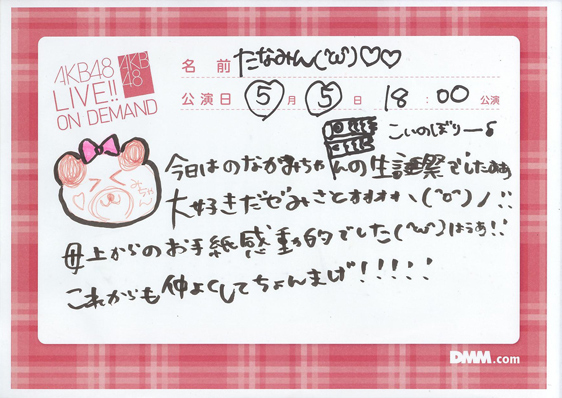 AKB48
LIVE!!
ON DEMAND
AKB
48
名前 たなみん(˘ω˘)♡♡
公演日 5月5日 18:00公演
こいのぼりー
今日はのなかみちゃんの生誕祭でしたぁぁ
大好きだぞみさとォォォォ、(˘o˘)ノ!!
母上からのお手紙感動的でした(˘ω˘)はぅあ!!
これからも仲よくしてちょんまげ!!!!!
DMM.com